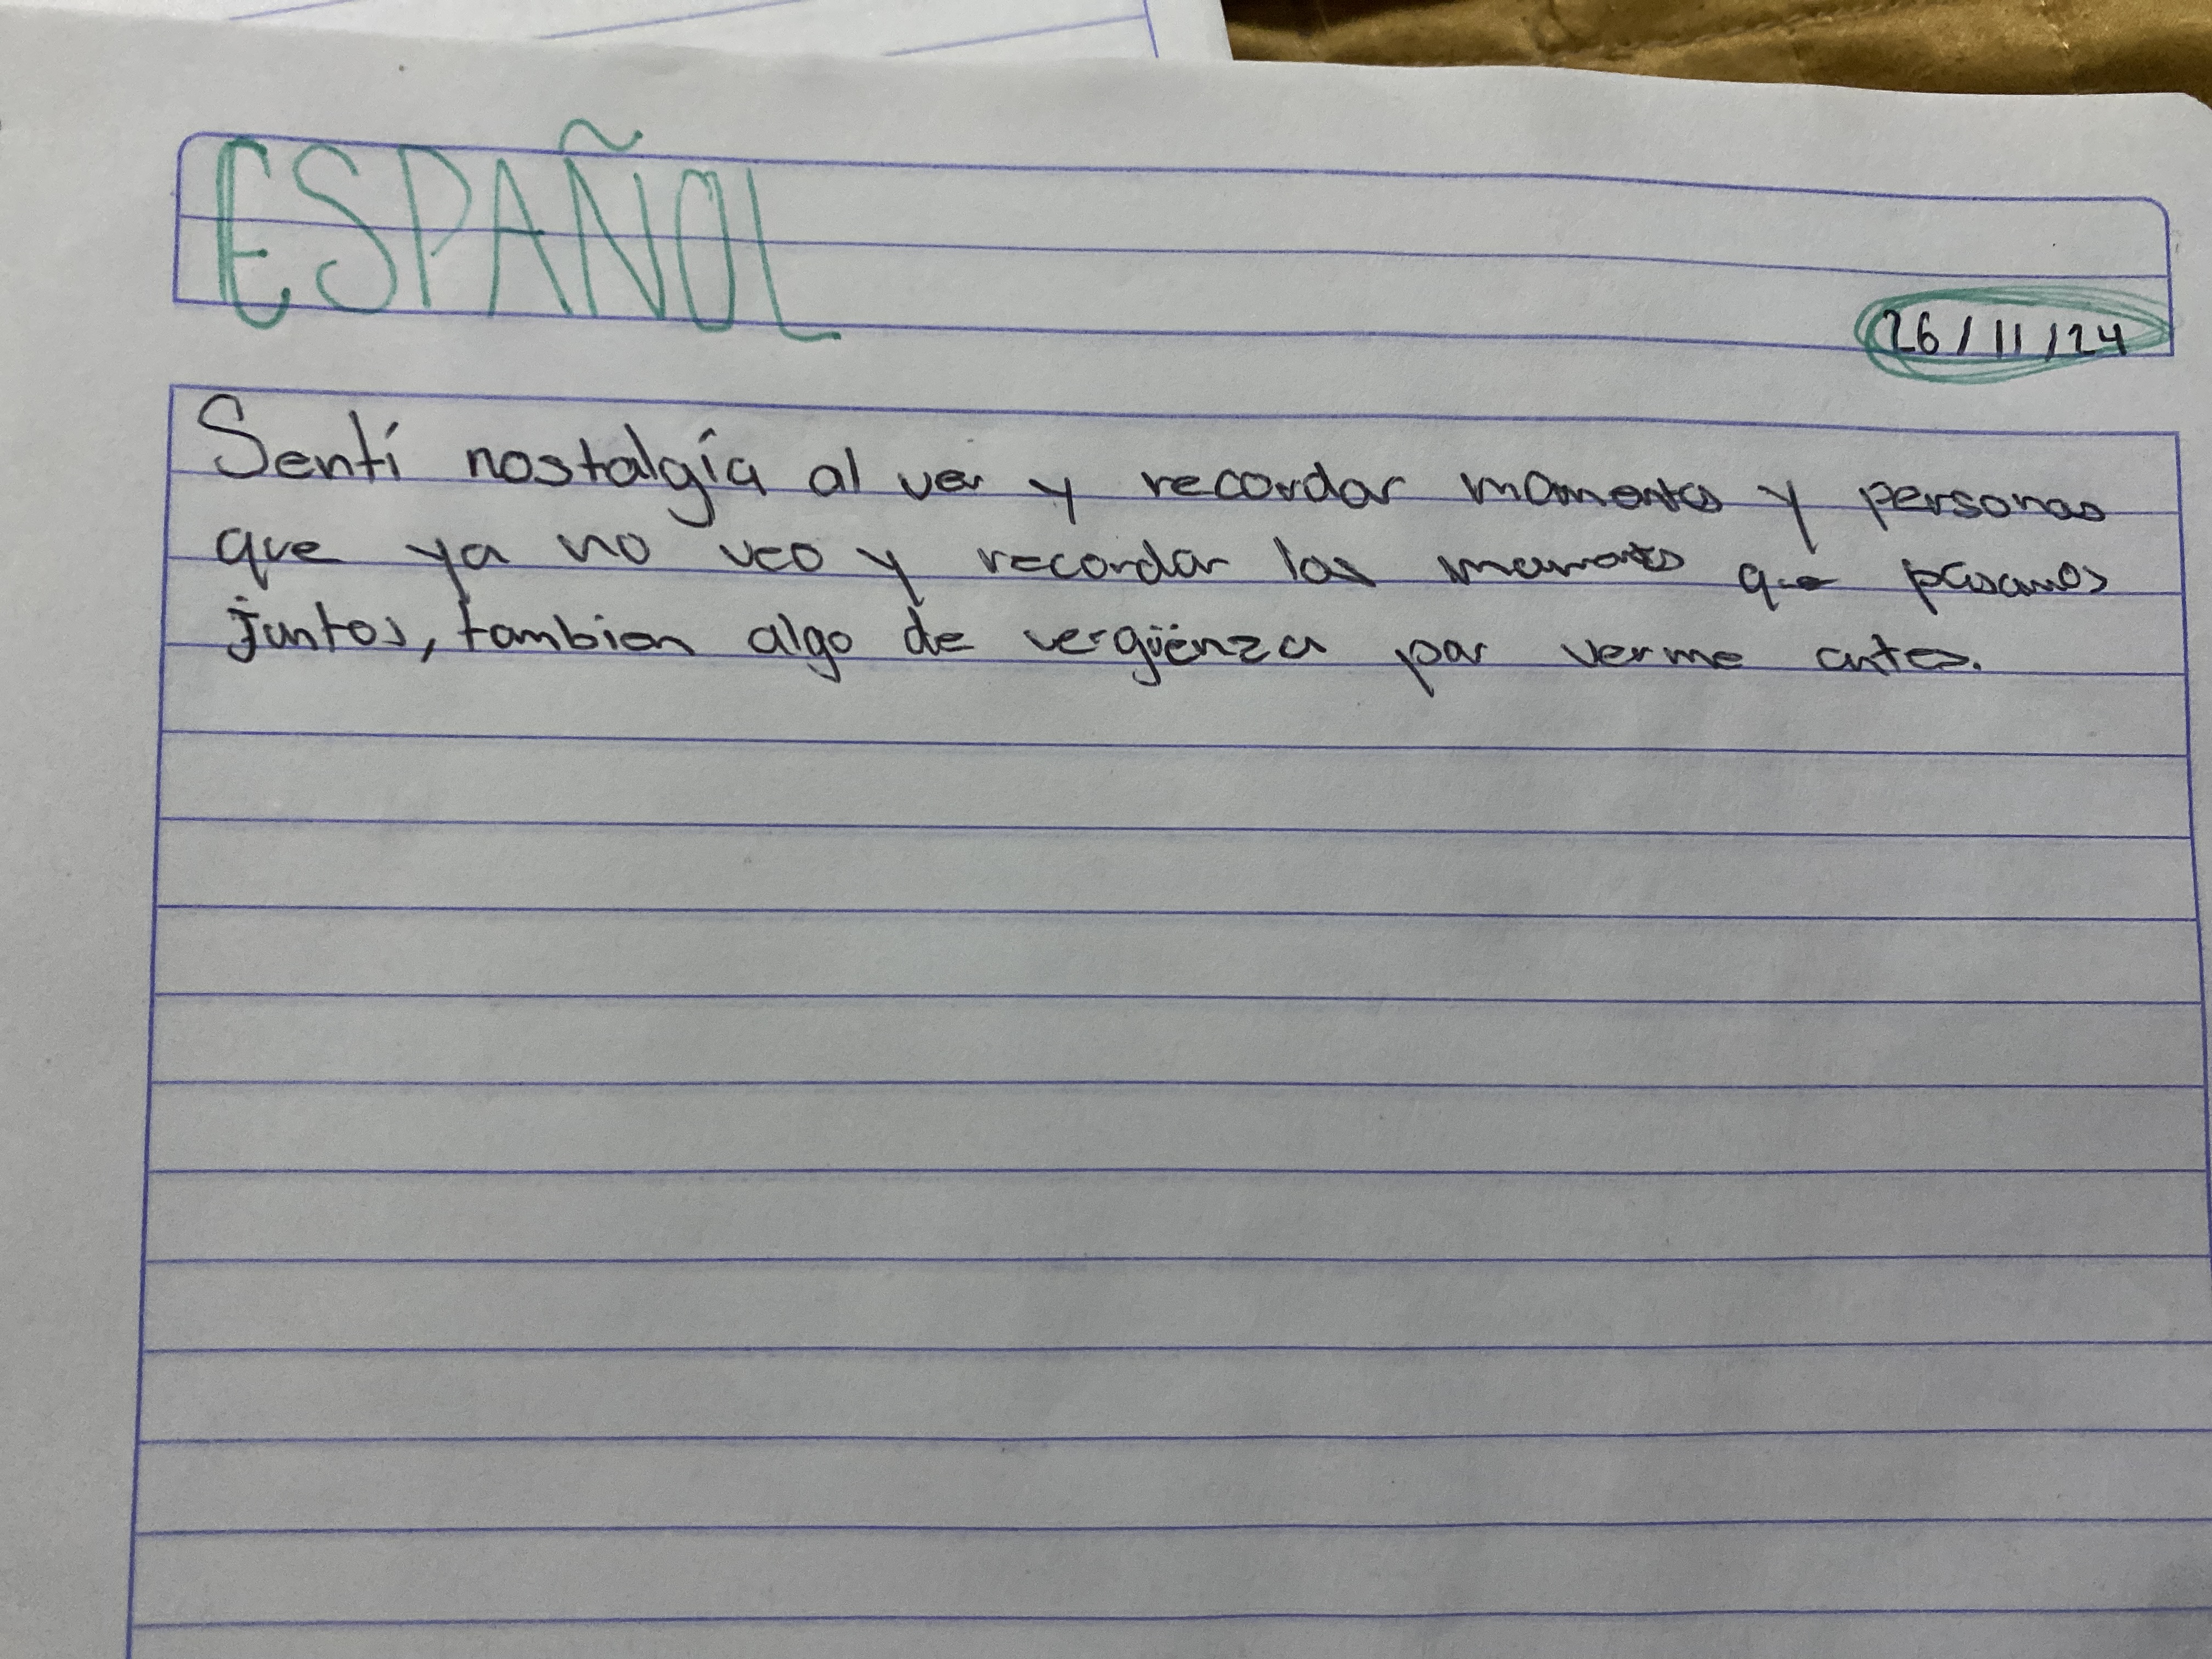 ESPAÑOL
26/11/24
Sentí nostalgía al ver y recordar momentos y personas
que ya no veo y recordar los momentos que pasamos
juntos, tambien algo de vergüenza por verme antes.